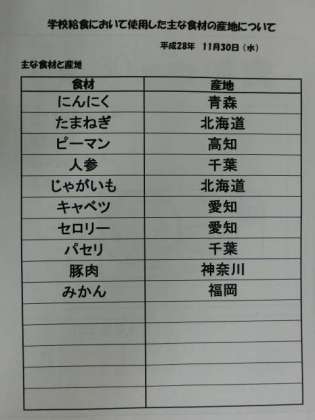 学校給食において使用した主な食材の産地について
平成28年 11月30日(水)
主な食材と産地
食材 産地
にんにく 青森
たまねぎ 北海道
ピーマン 高知
人参 千葉
じゃがいも 北海道
キャベツ 愛知
セロリー 愛知
パセリ 千葉
豚肉 神奈川
みかん 福岡